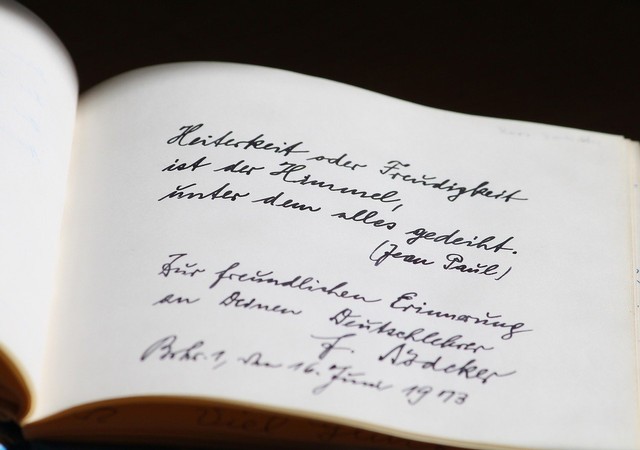 Heiterkeit oder Freudigkeit
ist der Himmel,
unter dem alles gedeiht.
(Jean Paul)
Zur freundlichen Erinnerung
an Deinen Deutschlehrer
F. Rödeker
1, den 16. Juni 1973
Viel